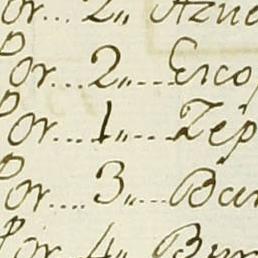 or... 2,, Azue
Por... 2,,... Esco
Por... 1,,... Zep
Por.... 3,,... Bar
Por... 4,, Bur